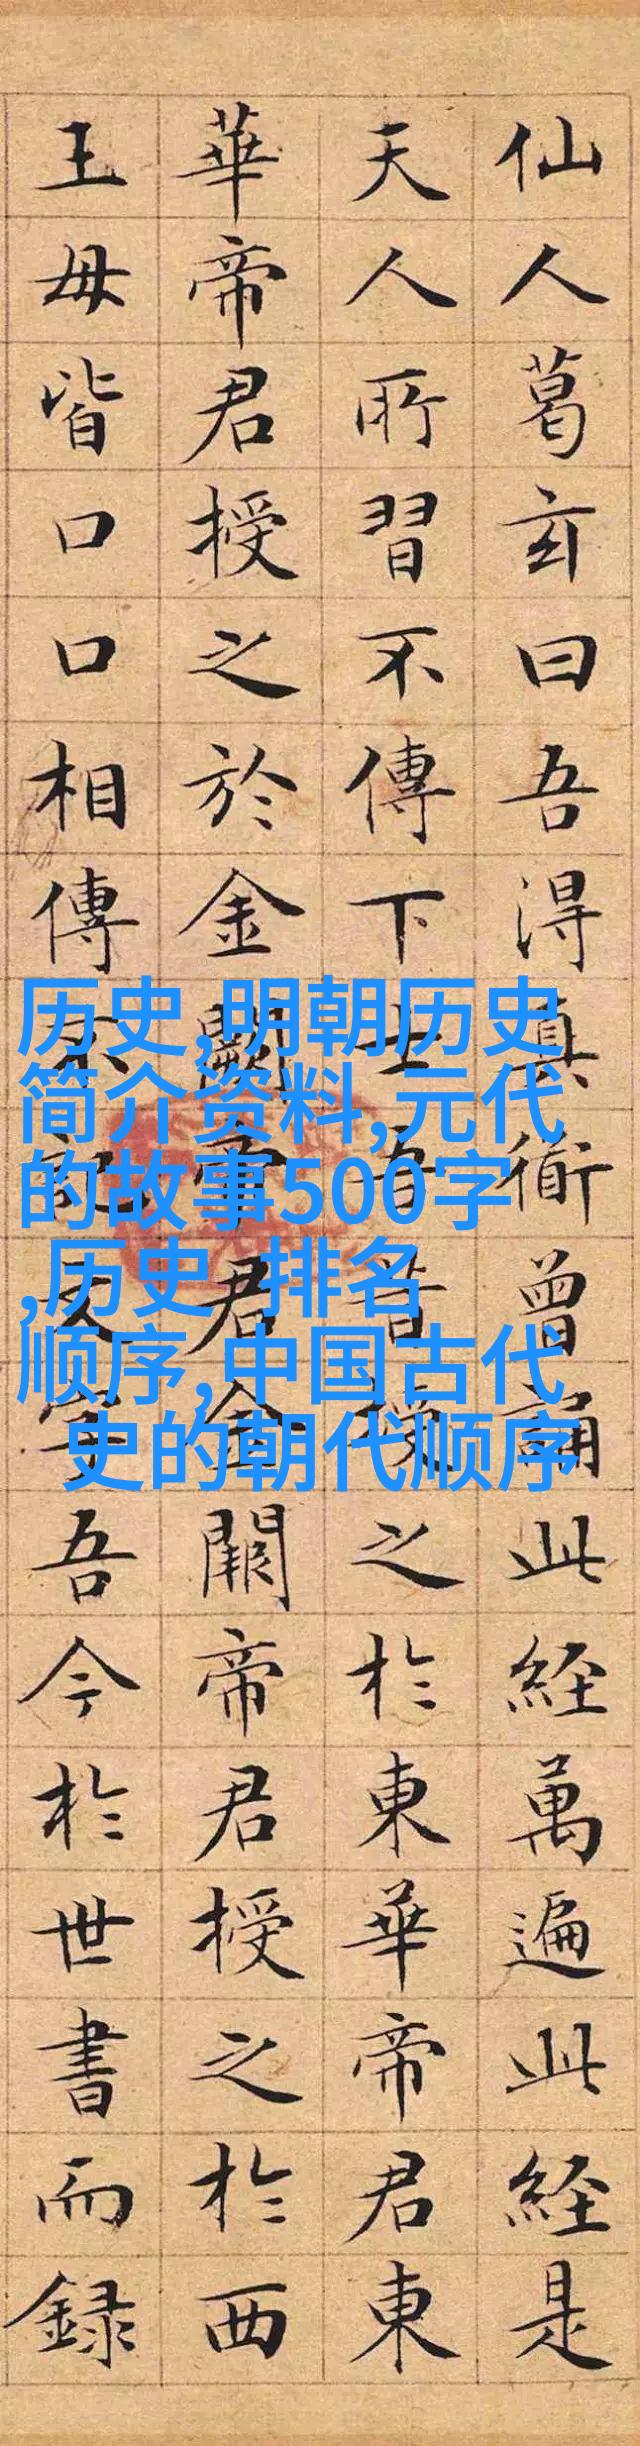 仙人葛玄曰吾淂真術曾誦此経萬遍此経是
天人所習不傳下士吾昔授之於東華帝君東
華帝君授之於金闕帝君金闕帝君授之於西
王母皆口口相傳不記文字吾今於世書而録
历史,明朝历史
简介资料,元代
的故事500字
,历史 排名
顺序,中国古代
史的朝代顺序